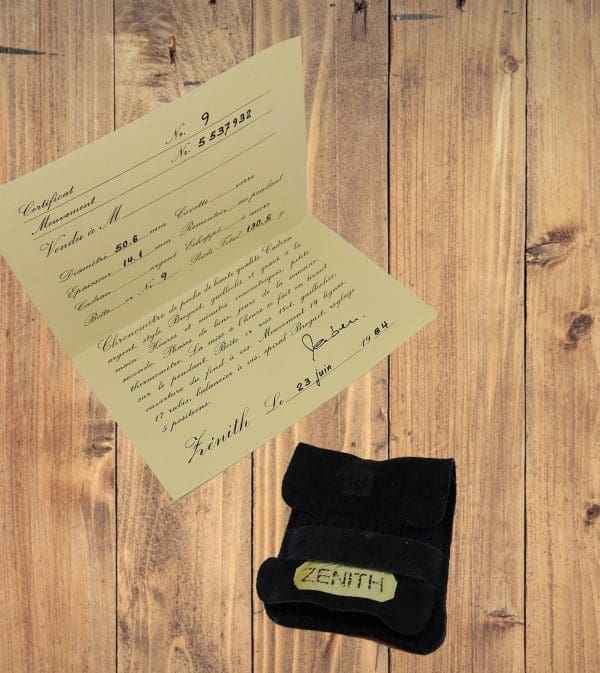 Certificat No. 9
Mouvement No. 5537932
Vendu à M
Diamètre 50.6 mm Cuvette verre
Epaisseur 14.1 mm Remontoir au pendant
Cadran argent Echappt. à ancre
Boîte or No. 9 Poids Total 130,5 gr
Chronomètre de poche de haute qualité. Cadran
argent, style Breguet, guilloché et gravé à la
main. Heures et minutes concentriques, petite
seconde. Phases de lune, jours de la semaine,
thermomètre. La mise à l'heure se fait en tirant
sur le pendant. Boîte or rose 18ct, guillochée,
ouverture du fond à vis. Mouvement 19 lignes,
17 rubis, balancier à vis, spiral Breguet, réglage
5 positions.
Zénith Le 23 juin 1984
ZENITH